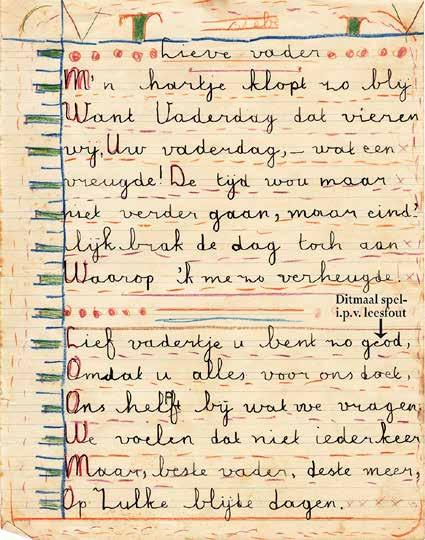 Lieve vader
M'n hartje klopt zo blij
Want Vaderdag dat vieren
wij, Uw vaderdag, – wat een
vreugde! De tijd wou maar
niet verder gaan, maar eind'-
lijk brak de dag toch aan
Waarop 'k me zo verheugde.
Ditmaal spel-
i.p.v. leesfout
Lief vadertje u bent zo geod,
Omdat u alles voor ons doet,
Ons helpt bij wat we vragen,
We voelen dat niet iederkeer
Maar, beste vader, deste meer,
Op Zulke blijde dagen.